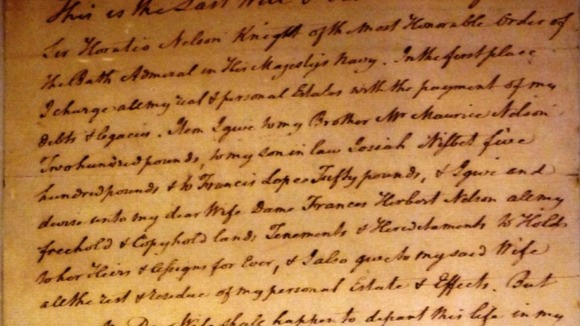 This is the Last Will &
Sir Horatio Nelson Knight of the Most Honorable Order of
the Bath Admiral in His Majestys Navy. In the first place
I charge all my real & personal Estates with the payment of my
debts & legacies. Item I give to my Brother Mr Maurice Nelson
Two hundred pounds, to my son in law Josiah Nisbet five
hundred pounds & to Francis Lopes Fifty pounds, & I give and
devise unto my dear Wife Dame Frances Herbert Nelson all my
freehold & Copyhold lands Tenements & Hereditaments To Hold
to her Heirs & Assigns for Ever, & I also give to my said Wife
all the rest & residue of my personal Estate & Effects. But
Dear Wife shall happen to depart this life in my